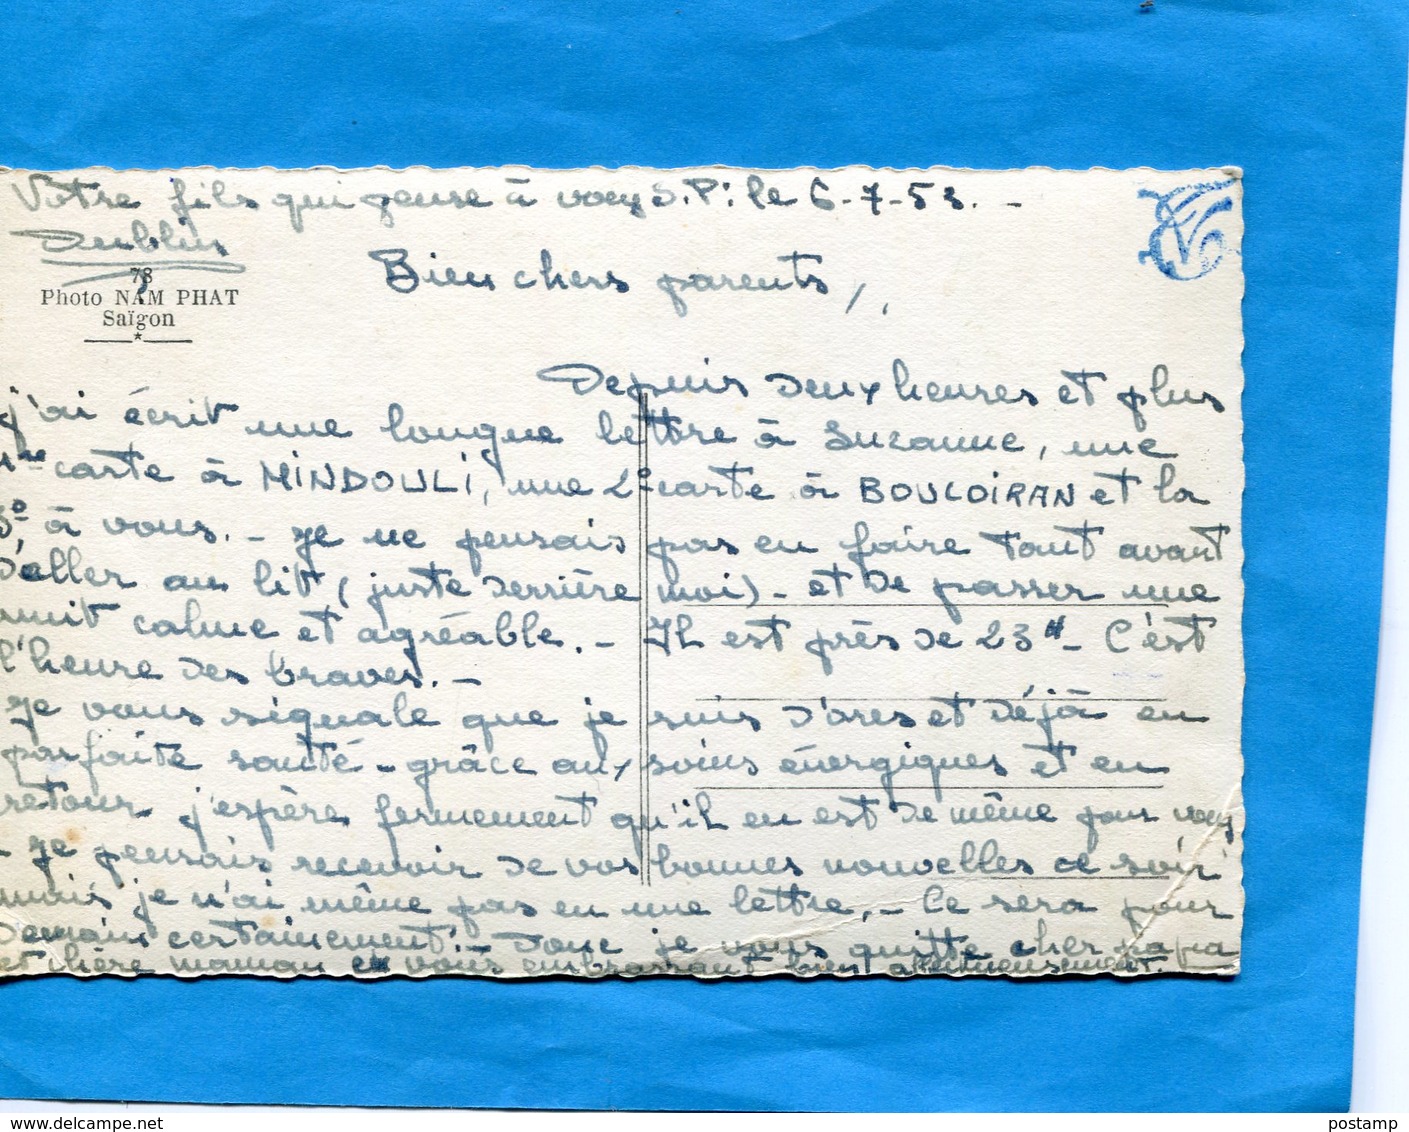 Votre fils qui pense à vous S.P. le 6-7-53.-
78
Photo NAM PHAT
Saïgon
Bien chers parents,
Depuis deux heures et plus
j'ai écrit une longue lettre à Suzanne, une
1re carte à MINDOULI, une 2e carte à BOUCOIRAN et la
3e, à vous.- Je ne pensais pas en faire tant avant
d'aller au lit (juste derrière moi)- et de passer une
nuit calme et agréable.- Il est près de 23H- C'est
l'heure des braves.-
Je vous signale que je suis d'ores et déjà en
parfaite santé- grâce aux soins énergiques et en
retour j'espère fermement qu'il en est de même pour vous
- Je pensais recevoir de vos bonnes nouvelles ce soir
mais je n'ai même pas eu une lettre,- Ce sera pour
demain certainement- Donc je vous quitte cher papa
et chère maman en vous embrassant bien affectueusement.
www.delcampe.net
postamp